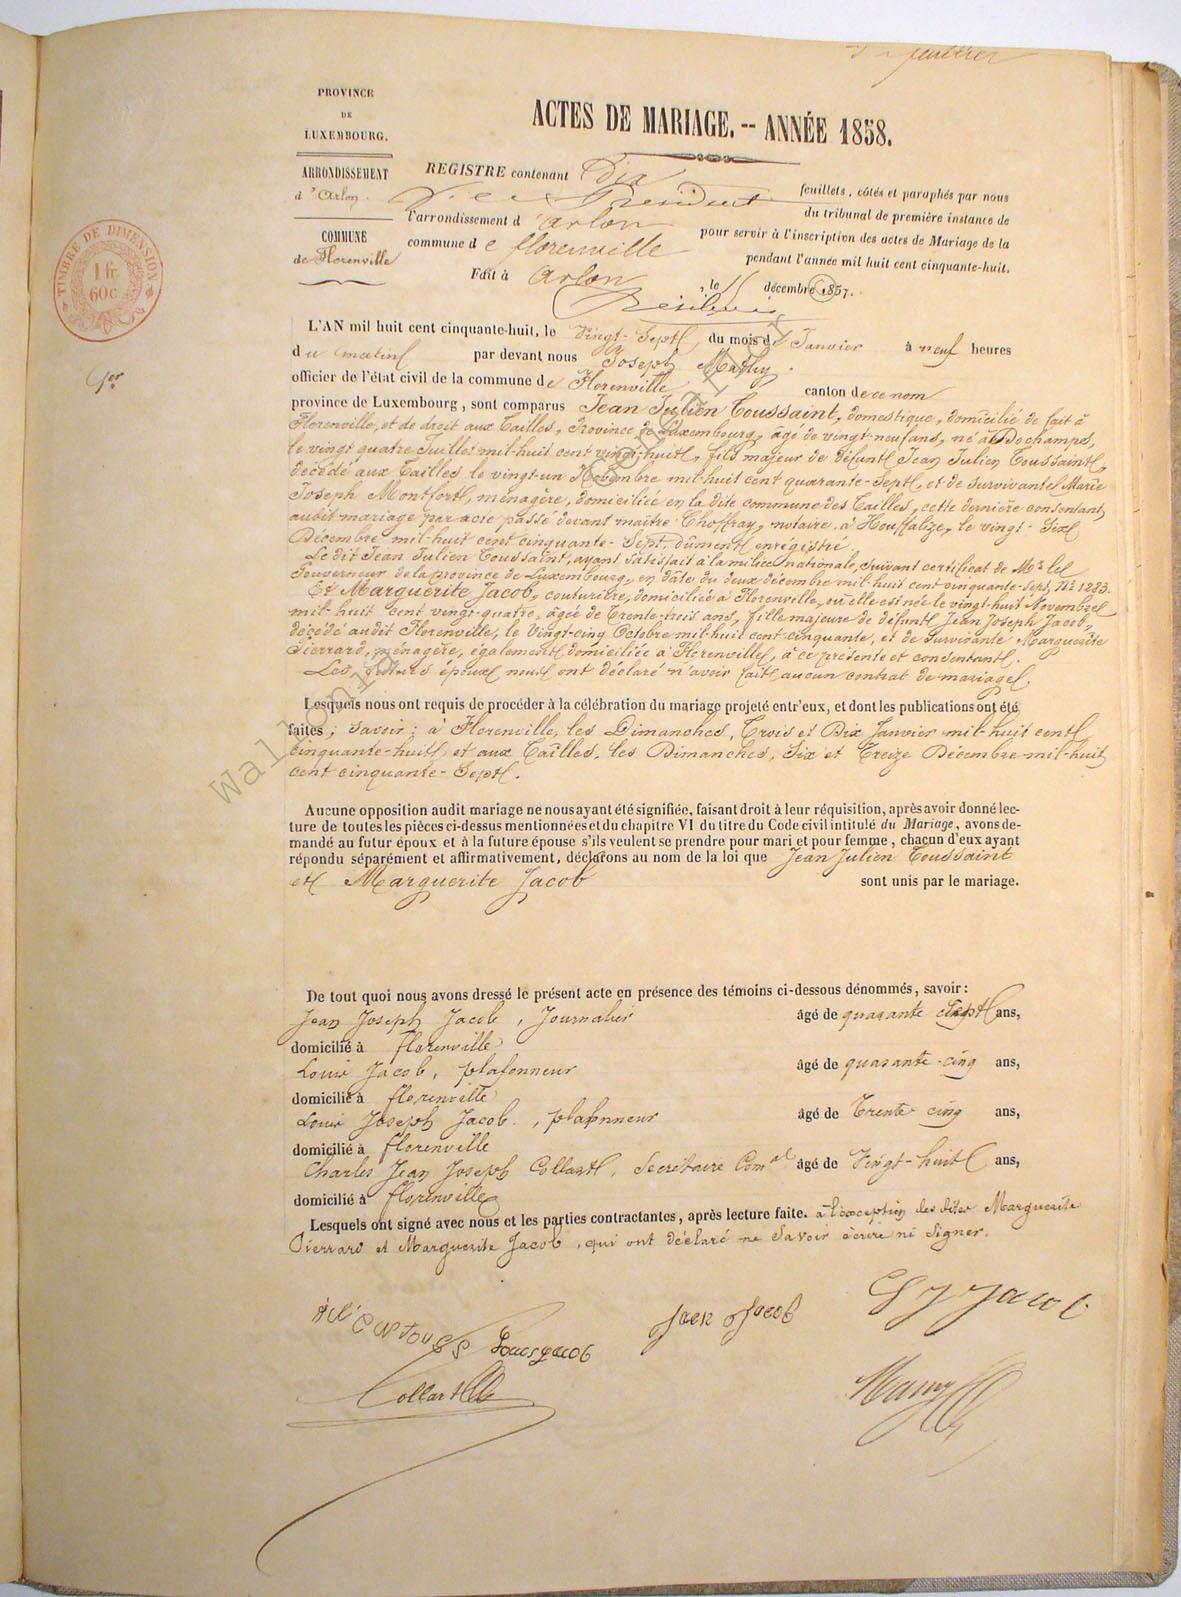 feuillet
PROVINCE
DE
LUXEMBOURG.
ARRONDISSEMENT
d'Arlon.
COMMUNE
de Florenville
TIMBRE DE DIMENSION
1 fr.
60 c.
1er
ACTES DE MARIAGE. -- ANNÉE 1858.
REGISTRE contenant Dix feuillets, côtés et paraphés par nous
Vice Président du tribunal de première instance de
l'arrondissement d'Arlon pour servir à l'inscription des actes de Mariage de la
commune de Florenville pendant l'année mil huit cent cinquante-huit.
Fait à Arlon, le décembre 1857.
L'AN mil huit cent cinquante-huit, le Vingt-Sept du mois de Janvier à neuf heures
du matin par devant nous Joseph Mathy.
officier de l'état civil de la commune de Florenville canton de ce nom
province de Luxembourg, sont comparus Jean Julien Toussaint, domestique, domicilié de fait à
Florenville, et de droit aux Tailles, Province de Luxembourg, âgé de vingt-neuf ans, né à Dochamps,
le vingt quatre Juillet mil-huit cent vingt-huit, fils majeur de défunt Jean Julien Toussaint,
décédé aux Tailles le vingt-un Novembre mil-huit cent quarante-Sept, et de survivante Marie
Joseph Montfort, ménagère, domiciliée en la dite commune des Tailles, cette dernière consentant
audit mariage par acte passé devant maître Choffray, notaire à Houffalize, le vingt-Six
Décembre mil-huit cent cinquante-Sept, dûment enrégistré.
Le dit Jean Julien Toussaint, ayant satisfait à la milice nationale, suivant certificat de Mr le
Gouverneur de la province de Luxembourg, en dâte du deux décembre mil-huit cent cinquante-Sept, No 1283.
Et Marguerite Jacob, couturière, domiciliée à Florenville, où elle est née le vingt-huit Novembre
mil-huit cent vingt-quatre, âgée de Trente-trois ans, fille majeure de défunt Jean Joseph Jacob,
décédé audit Florenville, le Vingt-cinq Octobre mil-huit cent-cinquante, et de Survivante Marguerite
Pierrard, ménagère, également domiciliée à Florenville, à ce présente et consentant.
Les futurs époux nous ont déclaré n'avoir fait aucun contrat de mariage.
Lesquels nous ont requis de procéder à la célébration du mariage projeté entr'eux, et dont les publications ont été
faites; savoir: à Florenville, les Dimanches, Trois et Dix Janvier mil-huit cent
cinquante-huit, et aux Tailles, les Dimanches, Six et Treize Décembre mil-huit
cent cinquante-Sept.
Aucune opposition audit mariage ne nous ayant été signifiée, faisant droit à leur réquisition, après avoir donné lec-
ture de toutes les pièces ci-dessus mentionnées et du chapitre VI du titre du Code civil intitulé du Mariage, avons de-
mandé au futur époux et à la future épouse s'ils veulent se prendre pour mari et pour femme, chacun d'eux ayant
répondu séparément et affirmativement, déclarons au nom de la loi que Jean Julien Toussaint
et Marguerite Jacob sont unis par le mariage.
De tout quoi nous avons dressé le présent acte en présence des témoins ci-dessous dénommés, savoir:
Jean Joseph Jacob, Journalier âgé de quarante ans,
domicilié à florenville
Louis Jacob, plafonneur âgé de quarante-cinq ans,
domicilié à florenville
Louis Joseph Jacob, plafonneur âgé de Trente cinq ans,
domicilié à florenville
Charles Jean Joseph Collart, Secrétaire Comal âgé de Vingt-huit ans,
domicilié à florenville
Lesquels ont signé avec nous et les parties contractantes, après lecture faite. à l'exception des dites Marguerite
Pierrard et Marguerite Jacob, qui ont déclaré ne Savoir écrire ni Signer.
Jacob
Collart